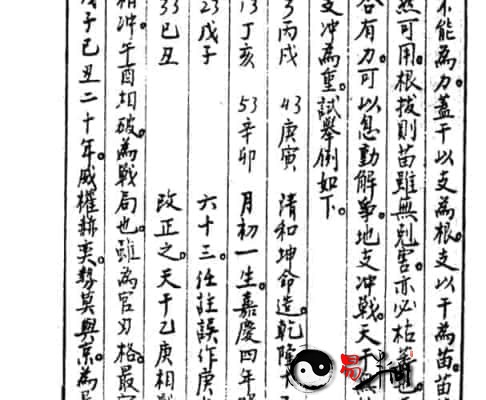 不能為力。蓋干以支為根。支以干為苗。苗
然可用。根拔則苗雖無剋害。亦必枯萎
合有力。可以息動解爭。地支冲戰。天
支冲為重。試舉例如下。
3丙戌 43庚寅 清和坤命造。乾隆
13丁亥 53辛卯 月初一生。嘉慶四年
23戊子 六十三。任註誤作庚
33己丑 改正之。天干乙庚相
相冲。午酉相破。為戰局也。雖為官刃格。最
戊子己丑二十年。威權赫奕。勢莫與京。為
易